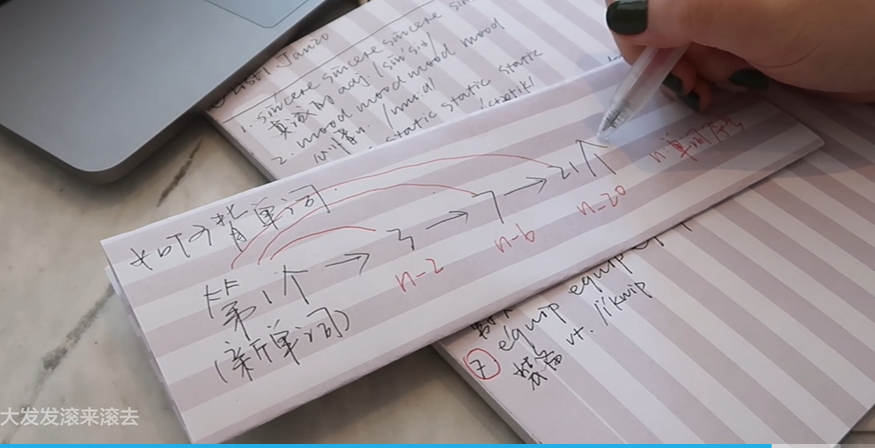 List1 Jan20
1. sincere sincere sincere sin
真诚的 adj. /sin'siə/
2. mood mood mood mood
心情 /mud/
static static static
/'stætik/
如何背单词
第1个 → 3 → 7 → 21个
(新单词)
n-2 n-6 n-20
n:单词序号
⑦ equip equip equip
装备 vt. /i'kwip
大发发滚来滚去